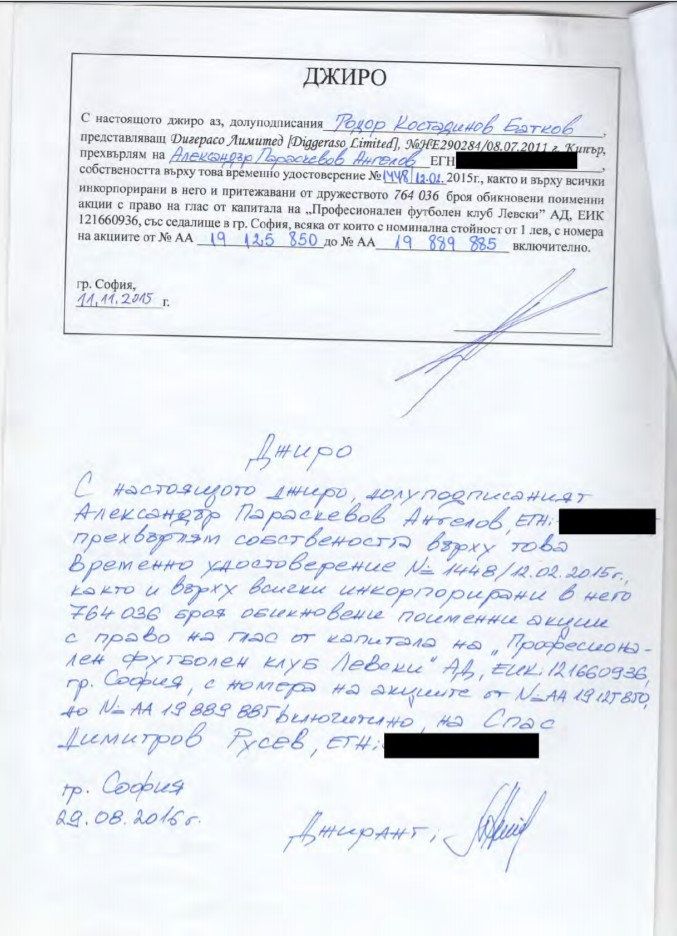 ДЖИРО
С настоящото джиро аз, долуподписания Тодор Костадинов Батков,
представляващ Дигерасо Лимитед [Diggeraso Limited], №HE290284/08.07.2011 г. Кипър,
прехвърлям на Александър Параскевов Ангелов ЕГН
собствеността върху това временно удостоверение № 1448/12.02.2015г., както и върху всички
инкорпорирани в него и притежавани от дружеството 764 036 броя обикновени поименни
акции с право на глас от капитала на „Професионален футболен клуб Левски" АД, ЕИК
121660936, със седалище в гр. София, всяка от които с номинална стойност от 1 лев, с номера
на акциите от № АА 19 125 850 до № АА 19 889 885 включително.
гр. София,
11.11.2015 г.
Джиро
С настоящото джиро, долуподписаният
Александър Параскевов Ангелов, ЕГН:
прехвърлям собствеността върху това
Временно удостоверение № 1448/12.02.2015г.,
както и върху всички инкорпорирани в него
764 036 броя обикновени поименни акции
с право на глас от капитала на „Професиона-
лен футболен клуб Левски" АД, ЕИК: 121660936,
гр. София, с номера на акциите от № АА 19 125 850,
до № АА 19 889 885 включително, на Спас
Димитров Русев, ЕГН:
гр. София
29.08.2016г.
Джирант: